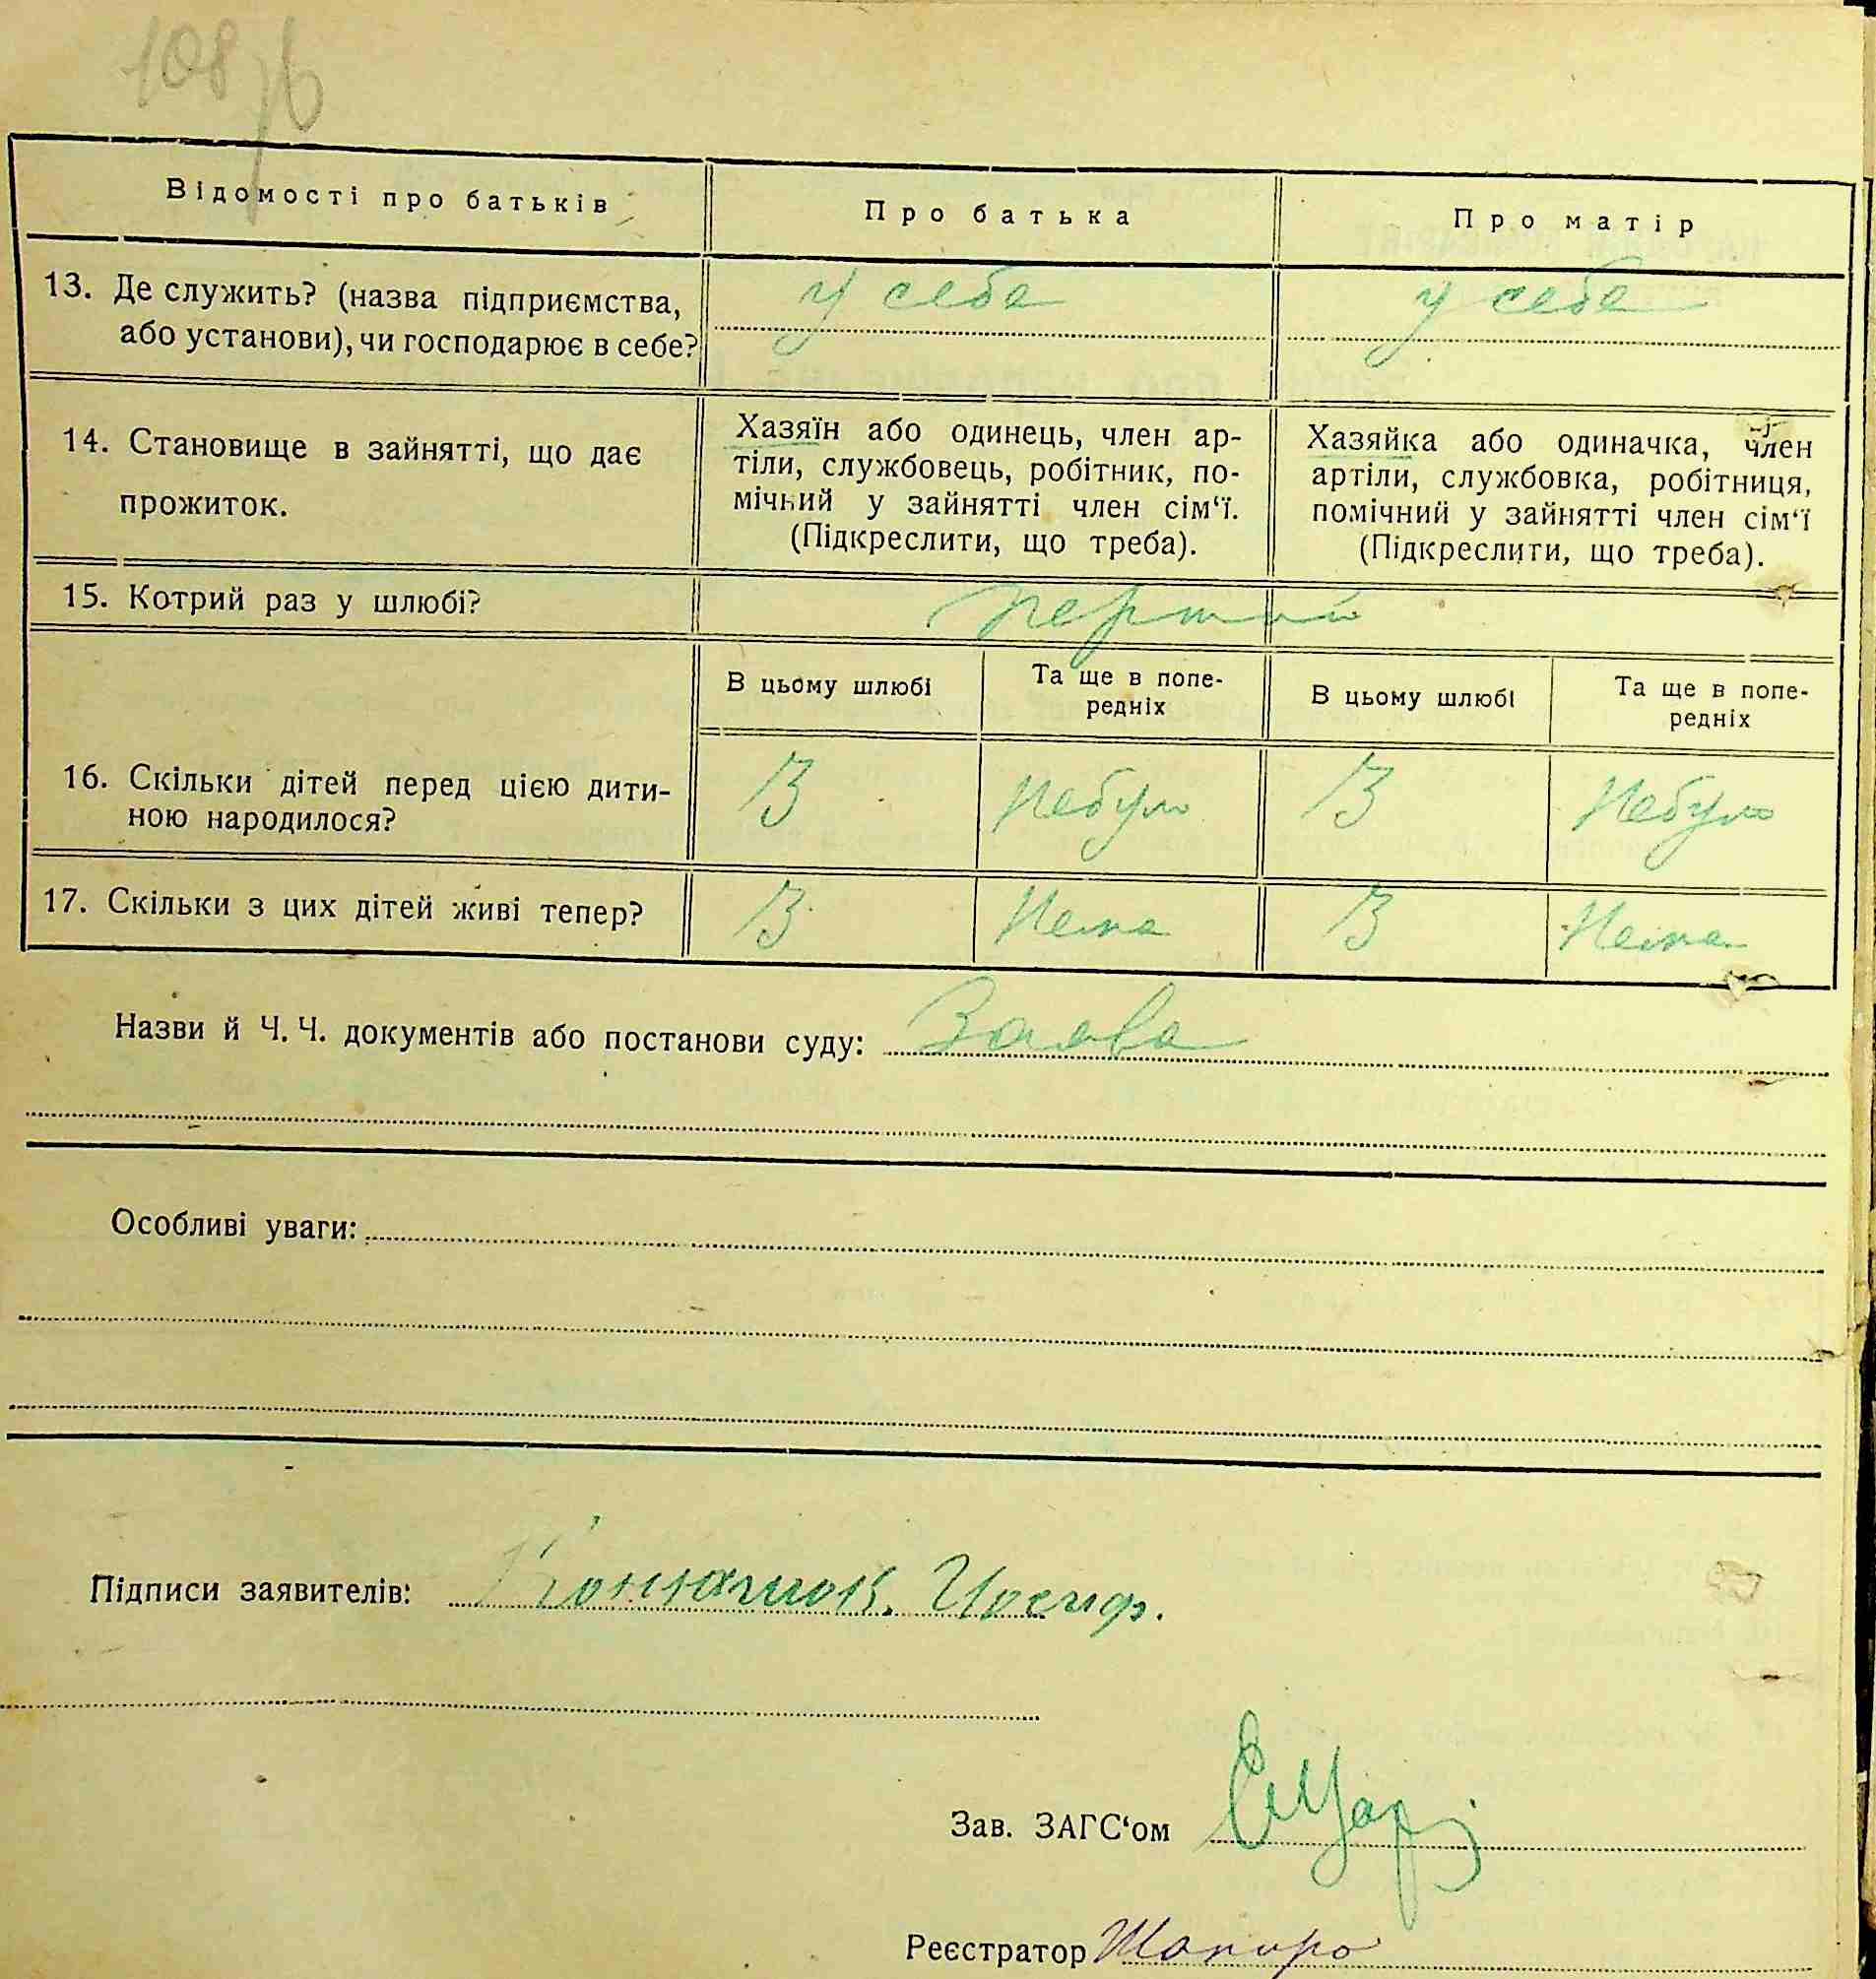 108
Відомості про батьків
Про батька
Про матір
13. Де служить? (назва підприємства,
або установи), чи господарює в себе?
у себе
у себе
14. Становище в зайнятті, що дає
прожиток.
Хазяїн або одинець, член ар-
тіли, службовець, робітник, по-
мічний у зайнятті член сім‘ї.
(Підкреслити, що треба).
Хазяйка або одиначка, член
артіли, службовка, робітниця,
помічний у зайнятті член сім‘ї
(Підкреслити, що треба).
15. Котрий раз у шлюбі?
перший
В цьому шлюбі
Та ще в попе-
редніх
В цьому шлюбі
Та ще в попе-
редніх
16. Скільки дітей перед цією дити-
ною народилося?
3
Небуло
3
Небуло
17. Скільки з цих дітей живі тепер?
3
Нема
3
Нема
Назви й Ч. Ч. документів або постанови суду: Заява
Особливі уваги:
Підписи заявителів: Йосиф.
Зав. ЗАГС‘ом
Реєстратор Шапиро